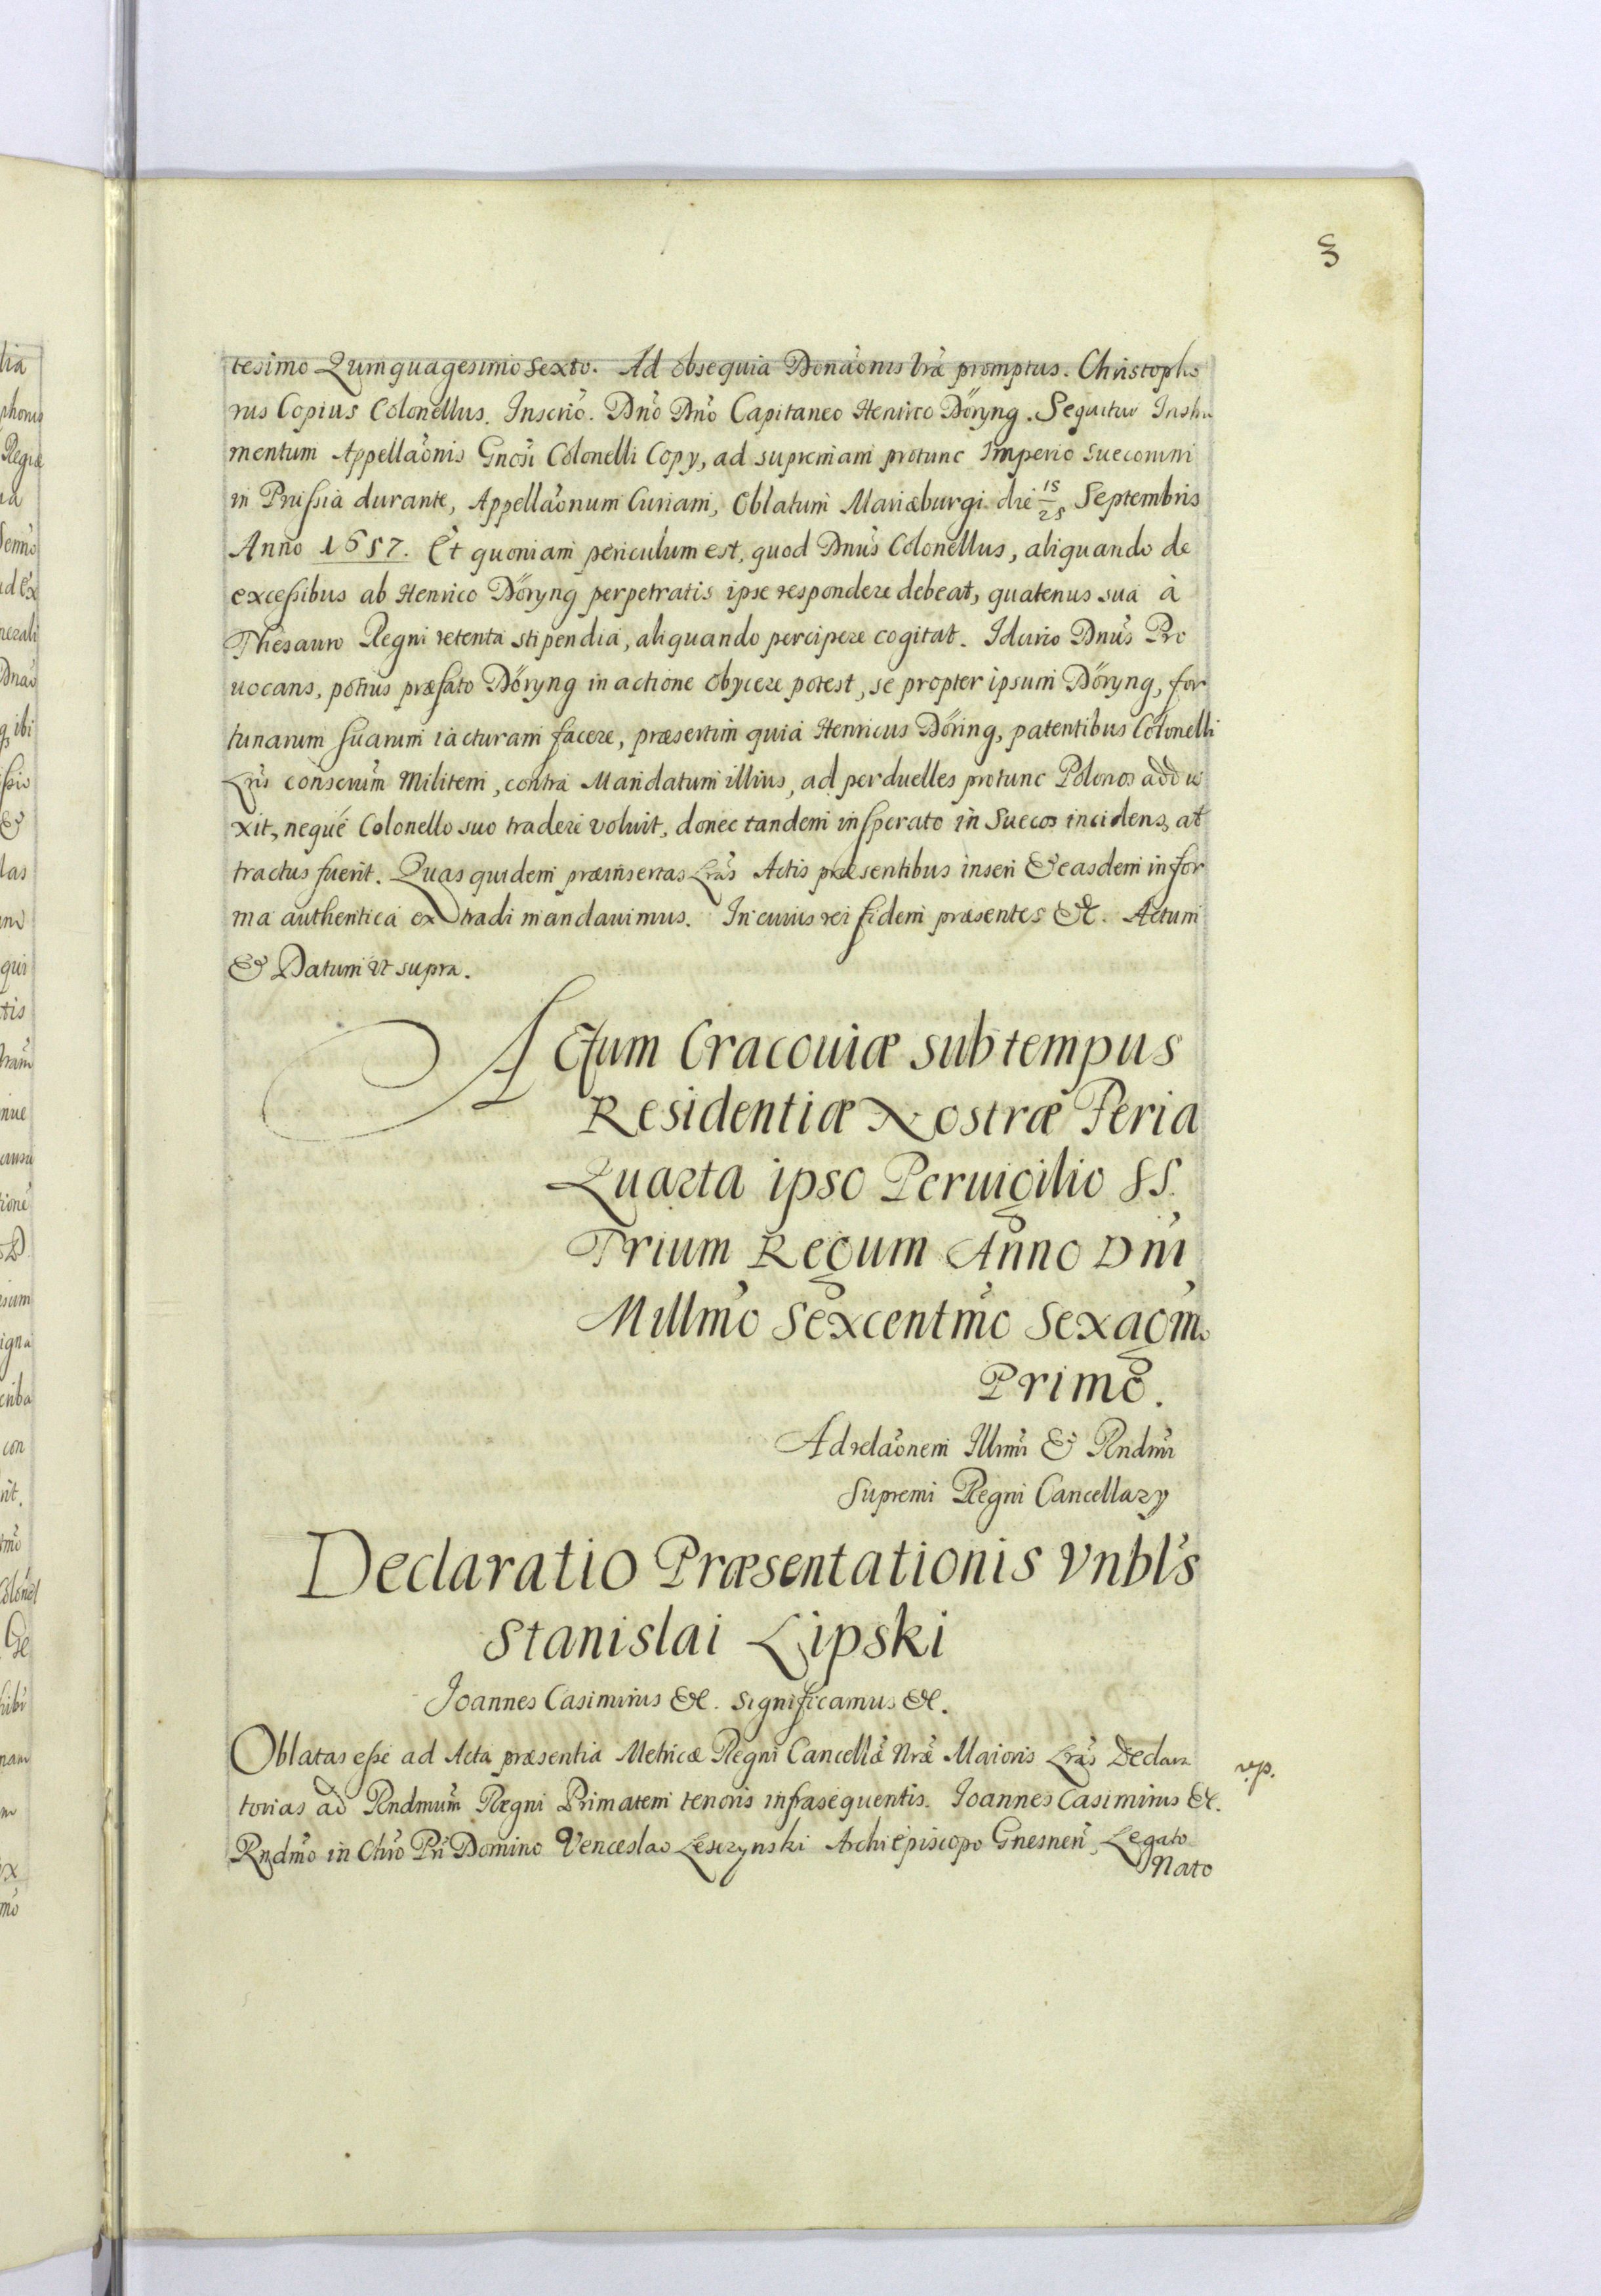 3
tesimo Quinquagesimo sexto. Ad obsequia Donãonis Vrã promptus. Christopho
rus Copius Colonellus. Inscriõ. Dnõ Dnõ Capitaneo Henrico Döryng. Sequitur Instru
mentum Appellãonis Gnosi Colonelli Copy, ad supremam protunc Imperio Suecorum
in Prussia durante, Appellãonum Curiam, Oblatum Mariæburgi die 15/25 Septembris
Anno 1657. Et quoniam periculum est, quod Dnus Colonellus, aliquando de
excessibus ab Henrico Döryng perpetratis ipse respondere debeat, quatenus sua à
Thesauro Regni retenta stipendia, aliquando percipere cogitat. Idcirco Dnus Pro
uocans, potius præfato Döryng in actione obycere potest, se propter ipsum Döryng, for
tunarum suarum iacturam facere, præsertim quia Henricus Döring, patentibus Colonelli
Lris conscrium Militem, contra Mandatum illius, ad perduelles protunc Polonos addu
xit, neque Colonello suo tradere voluit, donec tandem insperato in Suecos incidens, at
tractus fuerit. Quas quidem præinsertas Lras Actis præsentibus inseri & easdem in for
ma authentica extradi mandauimus. In cuius rei fidem præsentes &c. Actum
& Datum ut supra.
Actum Cracouiæ sub tempus
Residentiæ Nostræ Feria
Quarta ipso Peruigilio SS.
Trium Regum Anno Dni
Millmo Sexcentmo Sexagmo
Primo.
Ad relãonem Illmi & Rndmi
Supremi Regni Cancellary
Declaratio Præsentationis Vnbls
Stanislai Lipski
Joannes Casimirus &c. Significamus &c.
Oblatas esse ad Acta præsentia Metricæ Regni Cancellæ Nræ Maioris Lras Declara
vp.
torias ad Rndmum Regni Primatem tenoris infrasequentis. Joannes Casimirus &c.
Rndmo in Chro Pri Domino Venceslao Leszczynski Archiepiscopo Gnesnen, Legato
Nato